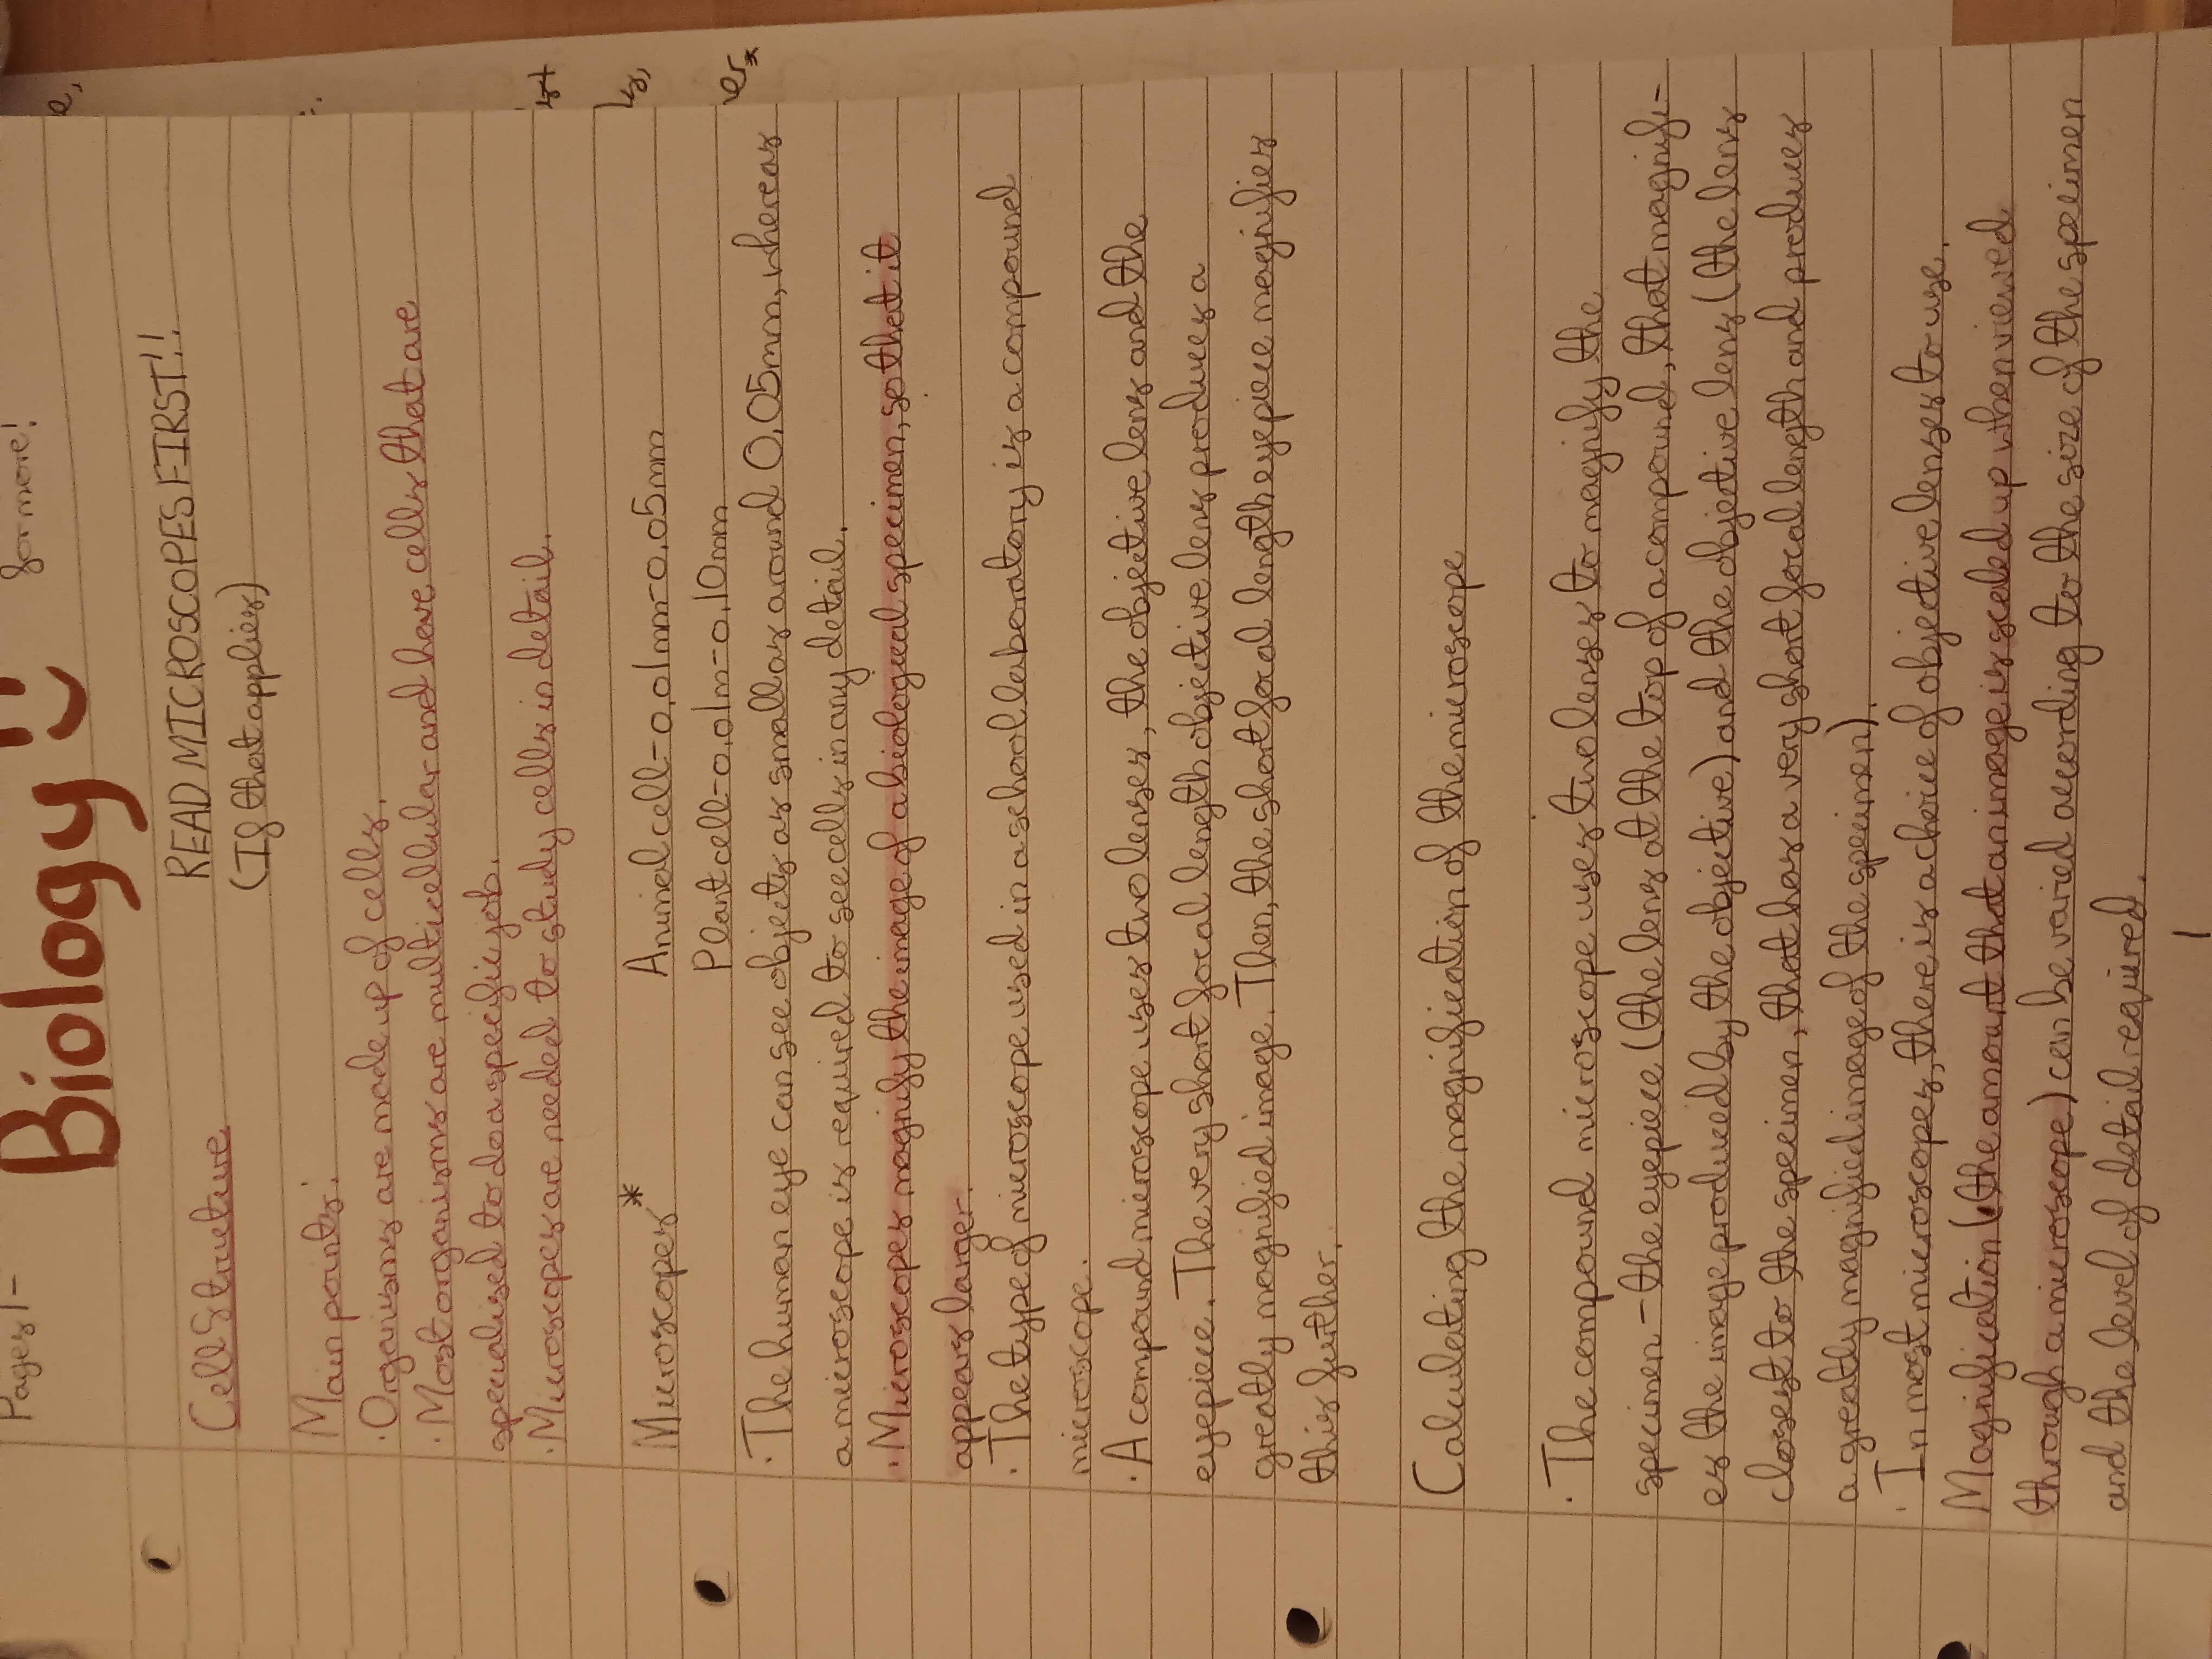 Pages 1-
for more!
Biology
READ MICROSCOPES FIRST!!
(If that applies)
Cell Structure
Main points:
· Organisms are made up of cells.
· Most organisms are multicellular and have cells that are
specialised to do a specific job.
· Microscopes are needed to study cells in detail.
Microscopes*
Animal cell-0.01mm-0.05mm
Plant cell-0.01m-0.10mm
· The human eye can see objects as small as around 0.05mm, whereas
a microscope is required to see cells in any detail.
· Microscopes magnify the image of a biological specimen, so that it
appears larger.
· The type of microscope used in a school laboratory is a compound
microscope.
· A compound microscope uses two lenses, the objective lens and the
eyepiece. The very short focal length objective lens produces a
greatly magnified image. Then, the short focal length eyepiece magnifies
this further.
Calculating the magnification of the microscope
· The compound microscope uses two lenses to magnify the
specimen - the eyepiece (the lens at the top of a compound, that magnifi-
es the image produced by the objective) and the objective lens (the lens
closest to the specimen, that has a very short focal length and produces
a greatly magnified image of the specimen).
· In most microscopes, there is a choice of objective lenses to use.
Magnification (the amount that an image is scaled up when viewed
through a microscope) can be varied according to the size of the speimen
and the level of detail required.
1